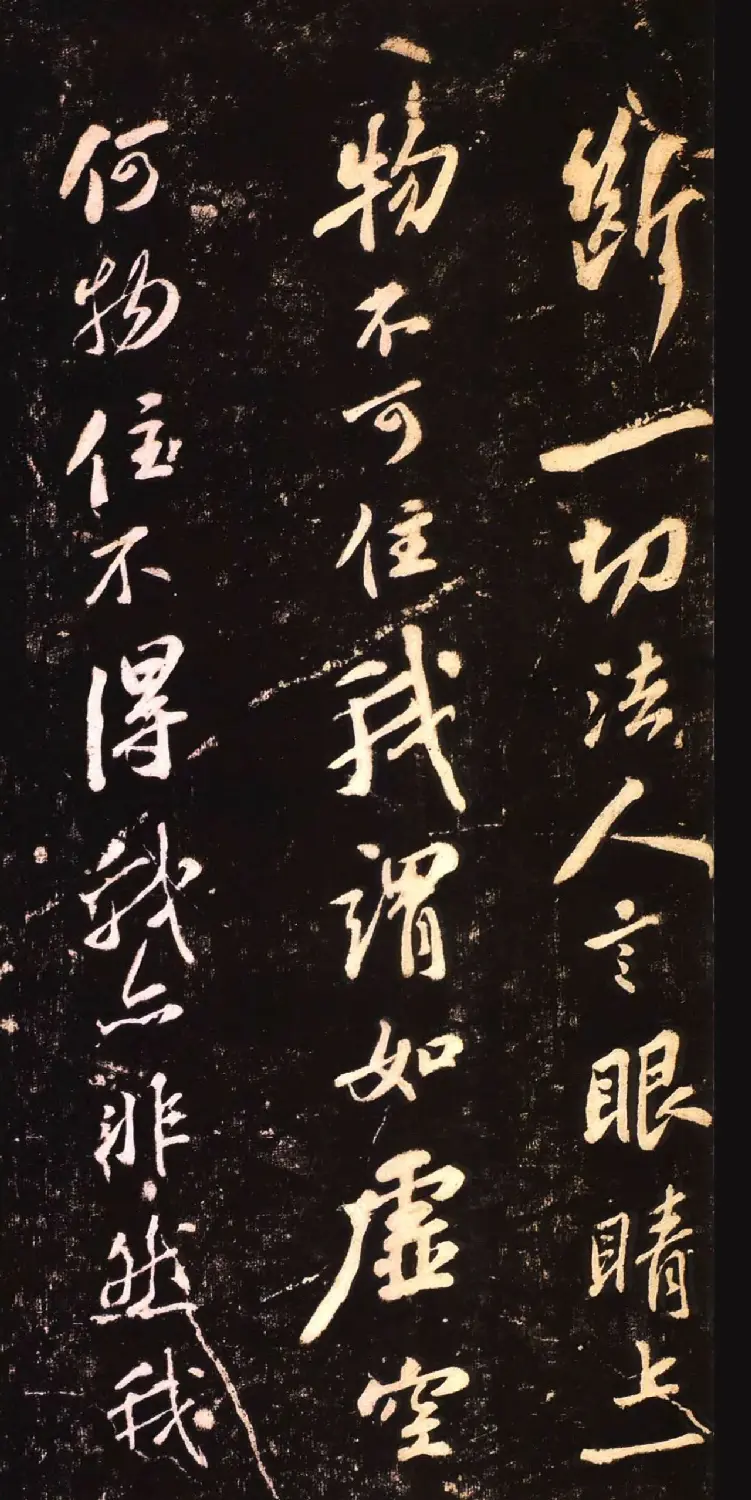 斷一切法人言眼睛上
一物不可住我謂如虛空
何物住不得我亦非然我